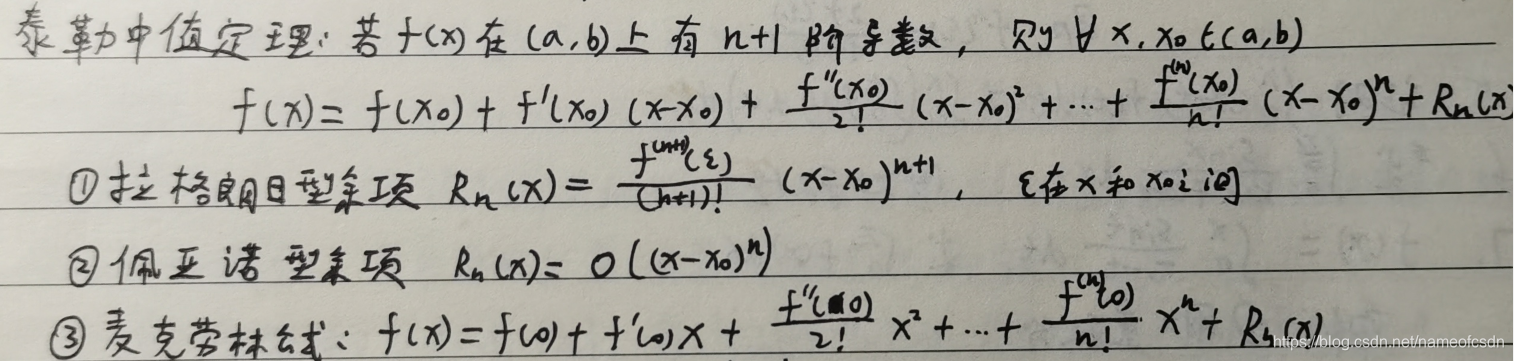 泰勒中值定理：若 f(x) 在 (a,b) 上有 n+1 阶导数，则 ∀ x, x₀ ∈ (a,b)
f(x) = f(x₀) + f'(x₀) (x-x₀) + f''(x₀)/2! (x-x₀)² + ... + f⁽ⁿ⁾(x₀)/n! (x-x₀)ⁿ + Rₙ(x)
① 拉格朗日型余项 Rₙ(x) = f⁽ⁿ⁺¹⁾(ξ)/(n+1)! (x-x₀)ⁿ⁺¹，ξ在 x 和 x₀之间
② 佩亚诺型余项 Rₙ(x) = o((x-x₀)ⁿ)
③ 麦克劳林公式：f(x) = f(0) + f'(0)x + f''(0)/2! x² + ... + f⁽ⁿ⁾(0)/n! xⁿ + Rₙ(x)
https://blog.csdn.net/nameofcsdn